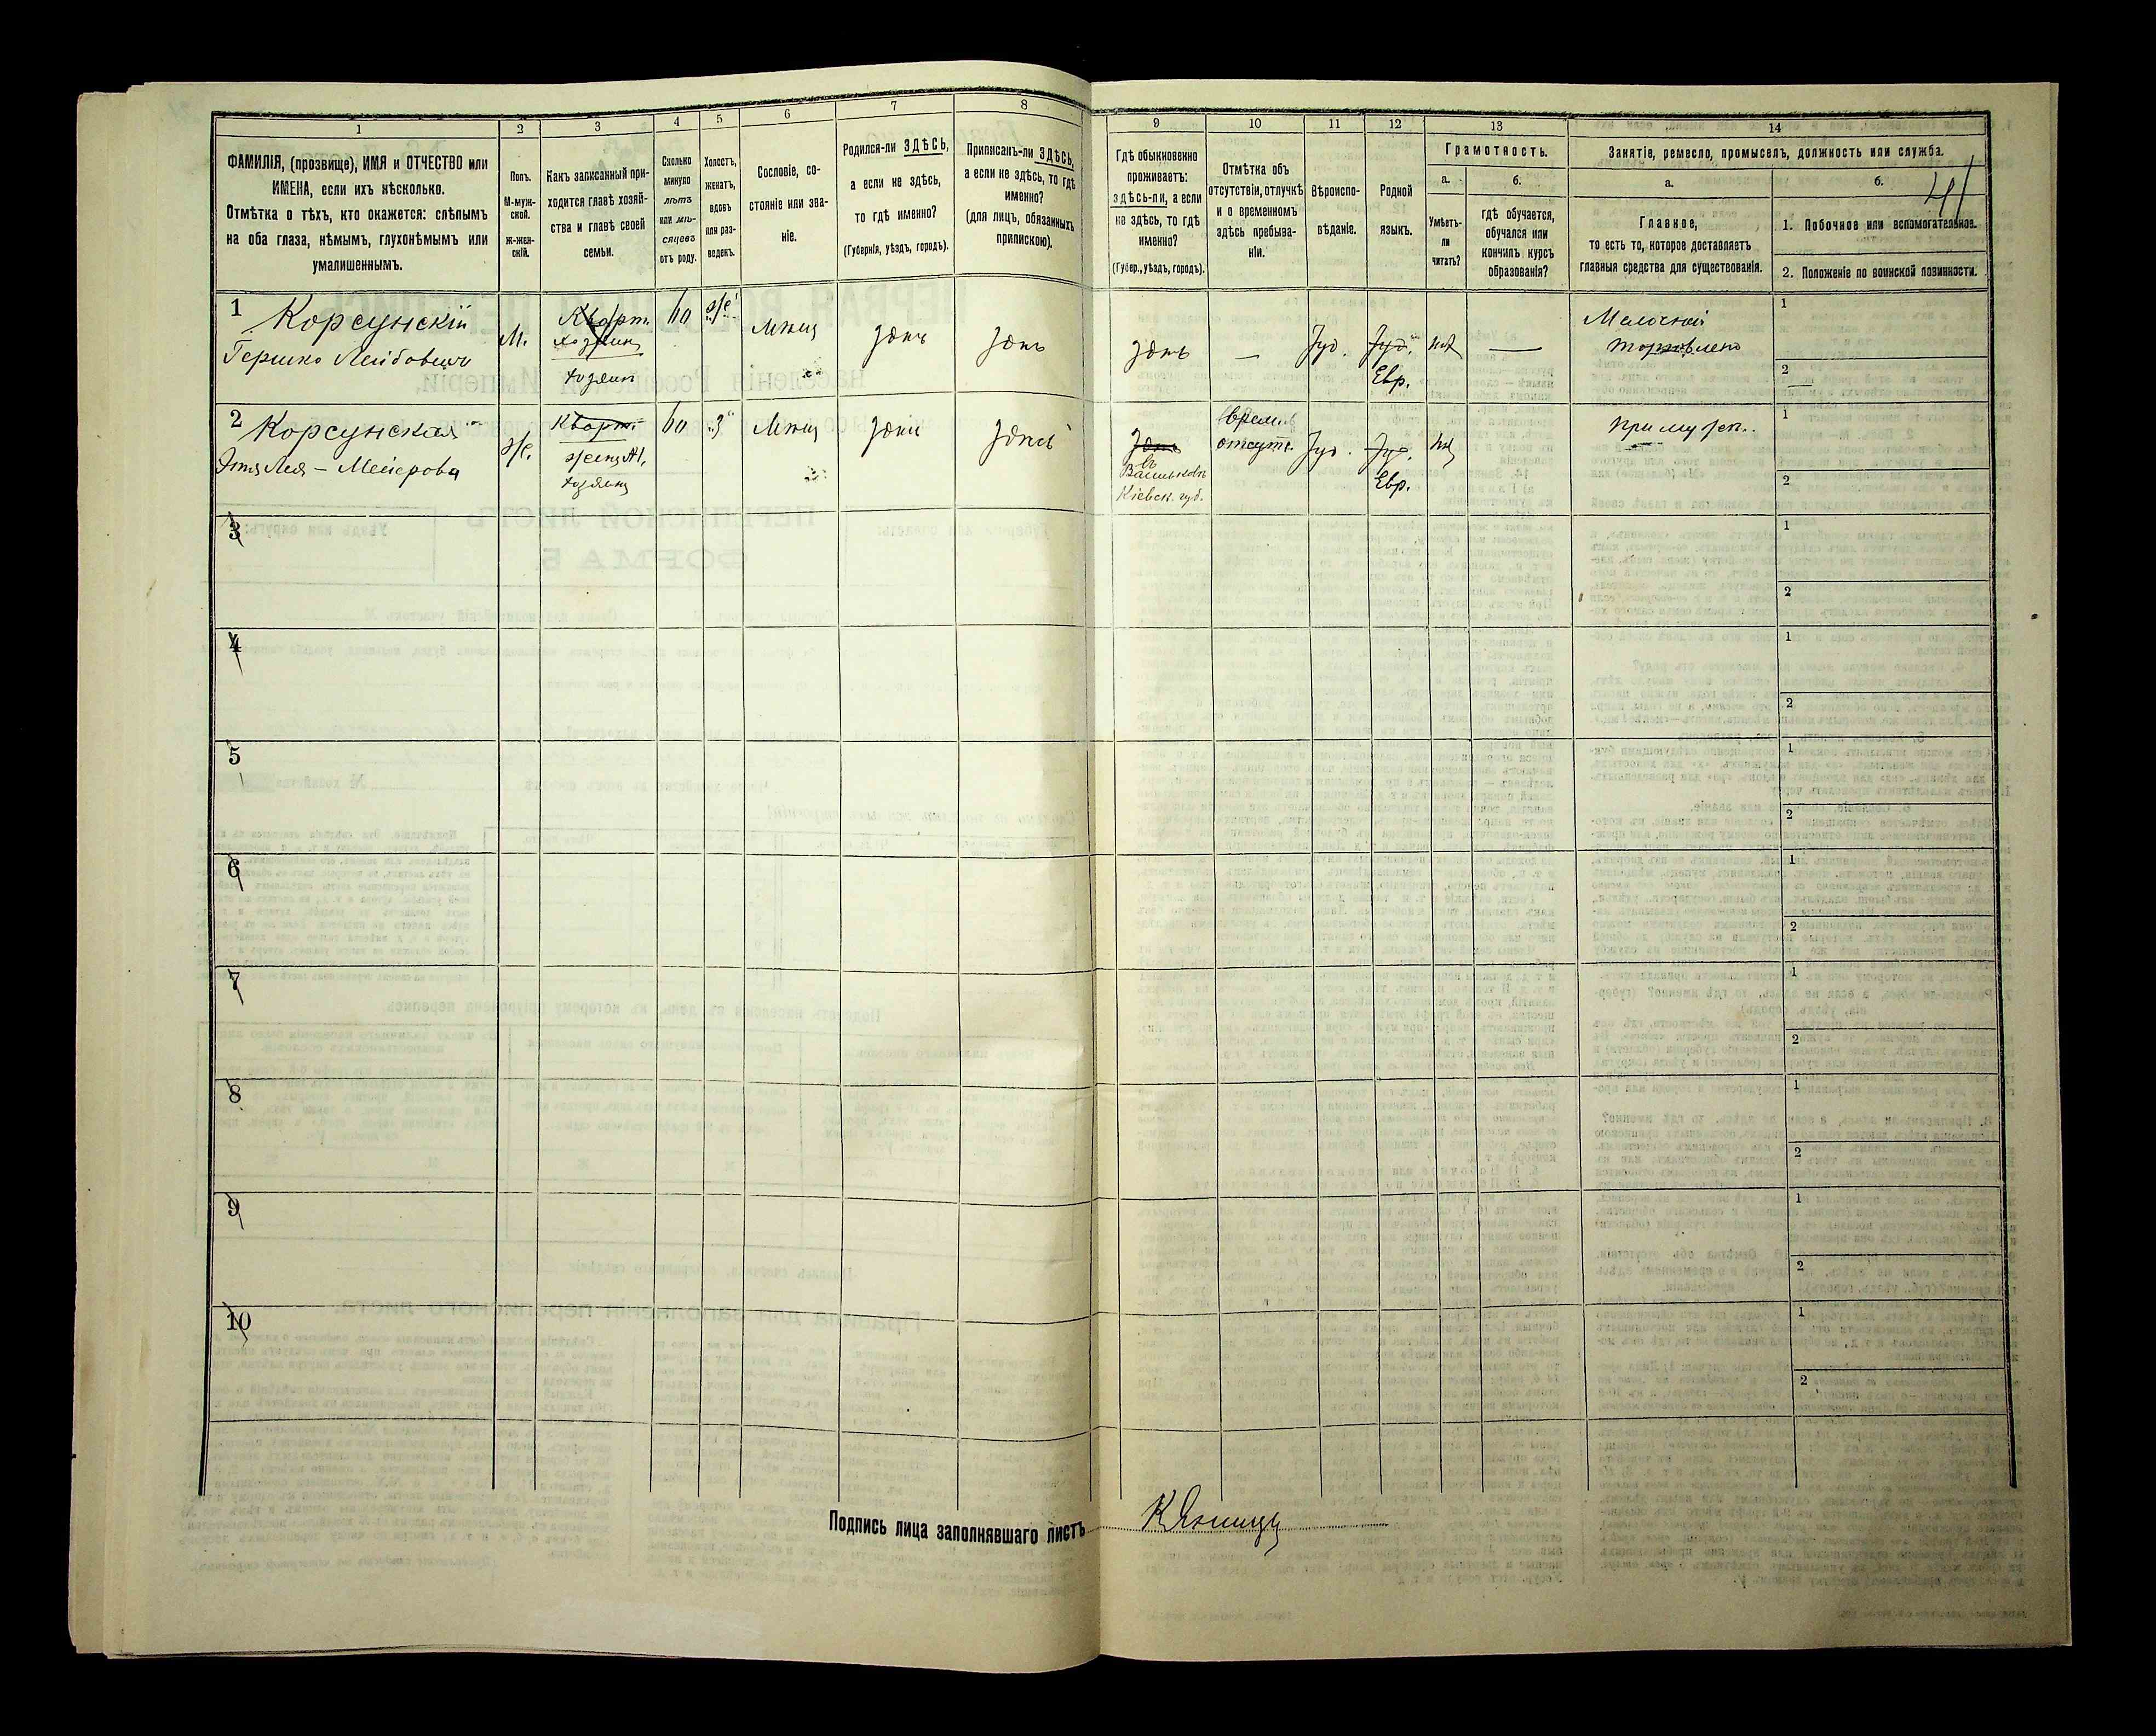 1
2
3
4
5
6
7
8
ФАМИЛІЯ, (прозвище), ИМЯ и ОТЧЕСТВО или
ИМЕНА, если ихъ нѣсколько.
Отмѣтка о тѣхъ, кто окажется: слѣпымъ
на оба глаза, нѣмымъ, глухонѣмымъ или
умалишеннымъ.
Полъ.
М-муж-
ской.
Ж-жен-
скій.
Какъ записанный при-
ходится главѣ хозяй-
ства и главѣ своей
семьи.
Сколько
минуло
лѣтъ
или мѣ-
сяцевъ
отъ роду.
Холостъ,
женатъ,
вдовъ
или раз-
веденъ.
Сословіе, со-
стояніе или зва-
ніе.
Родился-ли ЗДѢСЬ,
а если не здѣсь,
то гдѣ именно?
(Губернія, уѣздъ, городъ).
Приписанъ-ли ЗДѢСЬ,
а если не здѣсь, то гдѣ
именно?
(для лицъ, обязанныхъ
припискою).
9
10
11
12
13
14
Гдѣ обыкновенно
проживаетъ:
здѣсь-ли, а если
не здѣсь, то гдѣ
именно?
(Губер., уѣздъ, городъ).
Отмѣтка объ
отсутствіи, отлучкѣ
и о временномъ
здѣсь пребыва-
ніи.
Вѣроиспо-
вѣданіе.
Родной
языкъ.
Грамотность.
а.
Умѣетъ-
ли
читать?
б.
гдѣ обучается,
обучался или
кончилъ курсъ
образованія?
Занятіе, ремесло, промыселъ, должность или служба.
а.
Главное,
то есть то, которое доставляетъ
главныя средства для существованія.
б.
41
1. Побочное или вспомогательное.
2. Положеніе по воинской повинности.
1 Корсунскій
Гершко Лейбовичъ
М.
Кварт.
хозяинъ
хозяин
60
ж
Мѣщ
здѣсь
здѣсь
здѣсь
—
Іуд.
Іуд.
Евр.
нѣт
—
Мелочной
торговлею
1
2
—
2 Корсунская
Этя Лея - Мейерова
ж.
Кварт.
жена №1,
хозяина
60
з
Мѣщ
здѣсь
здѣсь
здѣсь
въ
Васильковѣ
Кіевск. губ.
времен.
отсутст.
Іуд.
Іуд.
Евр.
нѣт
при муже.
1
2
3
1
2
4
1
2
5
1
2
6
1
2
7
1
2
8
1
2
9
1
2
10
1
2
Подпись лица заполнявшаго листъ